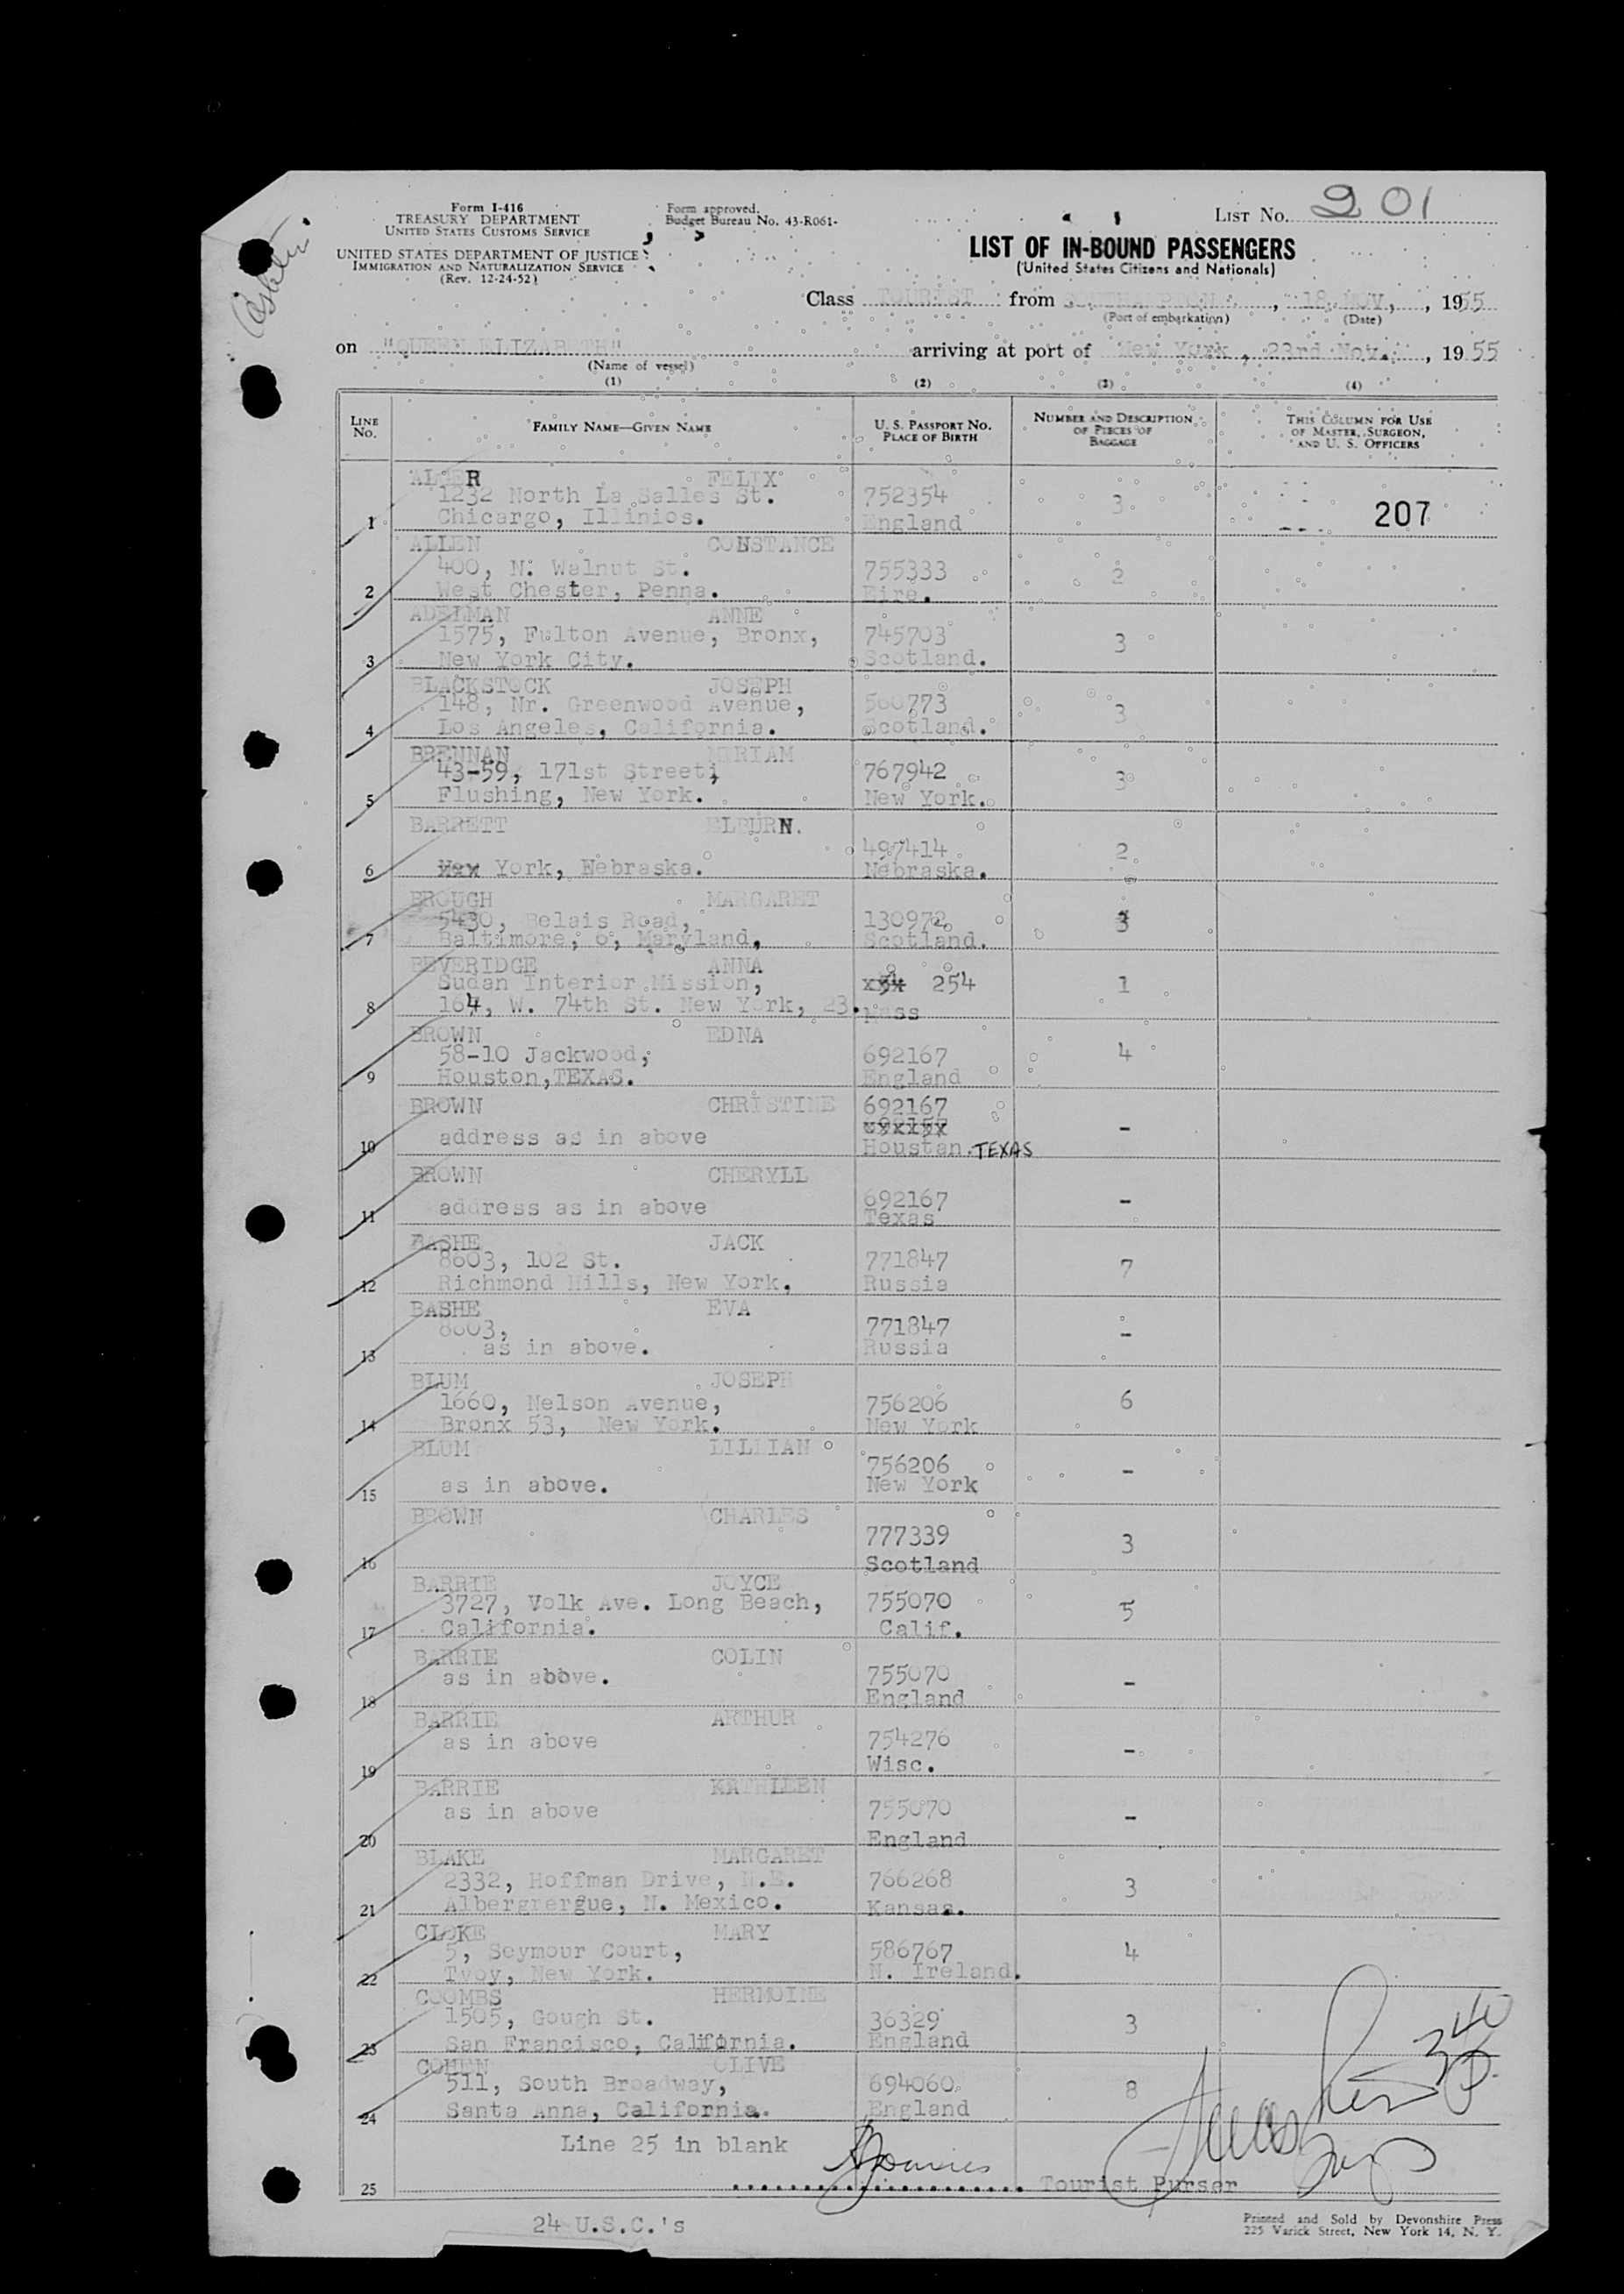 Form I-416
TREASURY DEPARTMENT
UNITED STATES CUSTOMS SERVICE
UNITED STATES DEPARTMENT OF JUSTICE
IMMIGRATION AND NATURALIZATION SERVICE
(Rev. 12-24-52)
Form approved.
Budget Bureau No. 43-R061-
LIST No. 201
LIST OF IN-BOUND PASSENGERS
(United States Citizens and Nationals)
Class TOURIST from SOUTHAMPTON, 18 NOV, 1955
(Port of embarkation) (Date)
on "QUEEN ELIZABETH" arriving at port of New York, 23rd Nov., 1955
(Name of vessel)
(1) (2) (3) (4)
LINE No. FAMILY NAME—GIVEN NAME U. S. PASSPORT No. PLACE OF BIRTH NUMBER AND DESCRIPTION OF PIECES OF BAGGAGE THIS COLUMN FOR USE OF MASTER, SURGEON, AND U. S. OFFICERS
FELIX
1232 North La Salles St. 752354 3 207
1 Chicargo, Illinios. England
ALLEN CONSTANCE
400, N: Walnut St. 755333 2
2 West Chester, Penna. Eire.
ADELMAN ANNE
1575, Fulton Avenue, Bronx, 745703 3
3 New York City. Scotland.
BLACKSTOCK JOSEPH
148, Nr. Greenwood Avenue, 560773 3
4 Los Angeles, California. Scotland.
BRENNAN MIRIAM
43-59, 171st Street, 767942 3
5 Flushing, New York. New York.
BARRETT ELBURN.
497414 2
6 York, Nebraska. Nebraska.
BROUGH MARGARET
5430, Belais Road, 130972 3
7 Baltimore, 6, Maryland, Scotland.
BEVERIDGE ANNA
Sudan Interior Mission, 254 1
8 164, W. 74th St. New York, 23. Mass
BROWN EDNA
58-10 Jackwood, 692167 4
9 Houston,TEXAS. England
BROWN CHRISTINE 692167
10 address as in above Houstan.TEXAS -
BROWN CHERYLL
11 address as in above 692167 Texas -
BASHE JACK
8603, 102 St. 771847 7
12 Richmond Hills, New York. Russia
BASHE EVA
8603, 771847 -
13 as in above. Russia
BLUM JOSEPH
1660, Nelson Avenue, 756206 6
14 Bronx 53, New York. New York
BLUM LILLIAN
756206 -
15 as in above. New York
BROWN CHARLES
777339 3
16 Scotland
BARRIE JOYCE
3727, Volk Ave. Long Beach, 755070 5
17 California. Calif.
BARRIE COLIN
as in above. 755070 -
18 England
BARRIE ARTHUR
as in above 754276 -
19 Wisc.
BARRIE KATHLEEN
as in above 755070 -
20 England
BLAKE MARGARET
2332, Hoffman Drive, N.E. 766268 3
21 Albergrergue, N. Mexico. Kansas.
CLOKE MARY
5, Seymour Court, 586767 4
22 Tvoy, New York. N. Ireland.
COOMBS HERMOINE
1505, Gough St. 36329 3
23 San Francisco, California. England
COHEN OLIVE
511, South Broadway, 694060 8
24 Santa Anna, California. England
Line 25 in blank
25 Tourist Purser
24 U.S.C.'s
Printed and Sold by Devonshire Press
225 Varick Street, New York 14, N. Y.